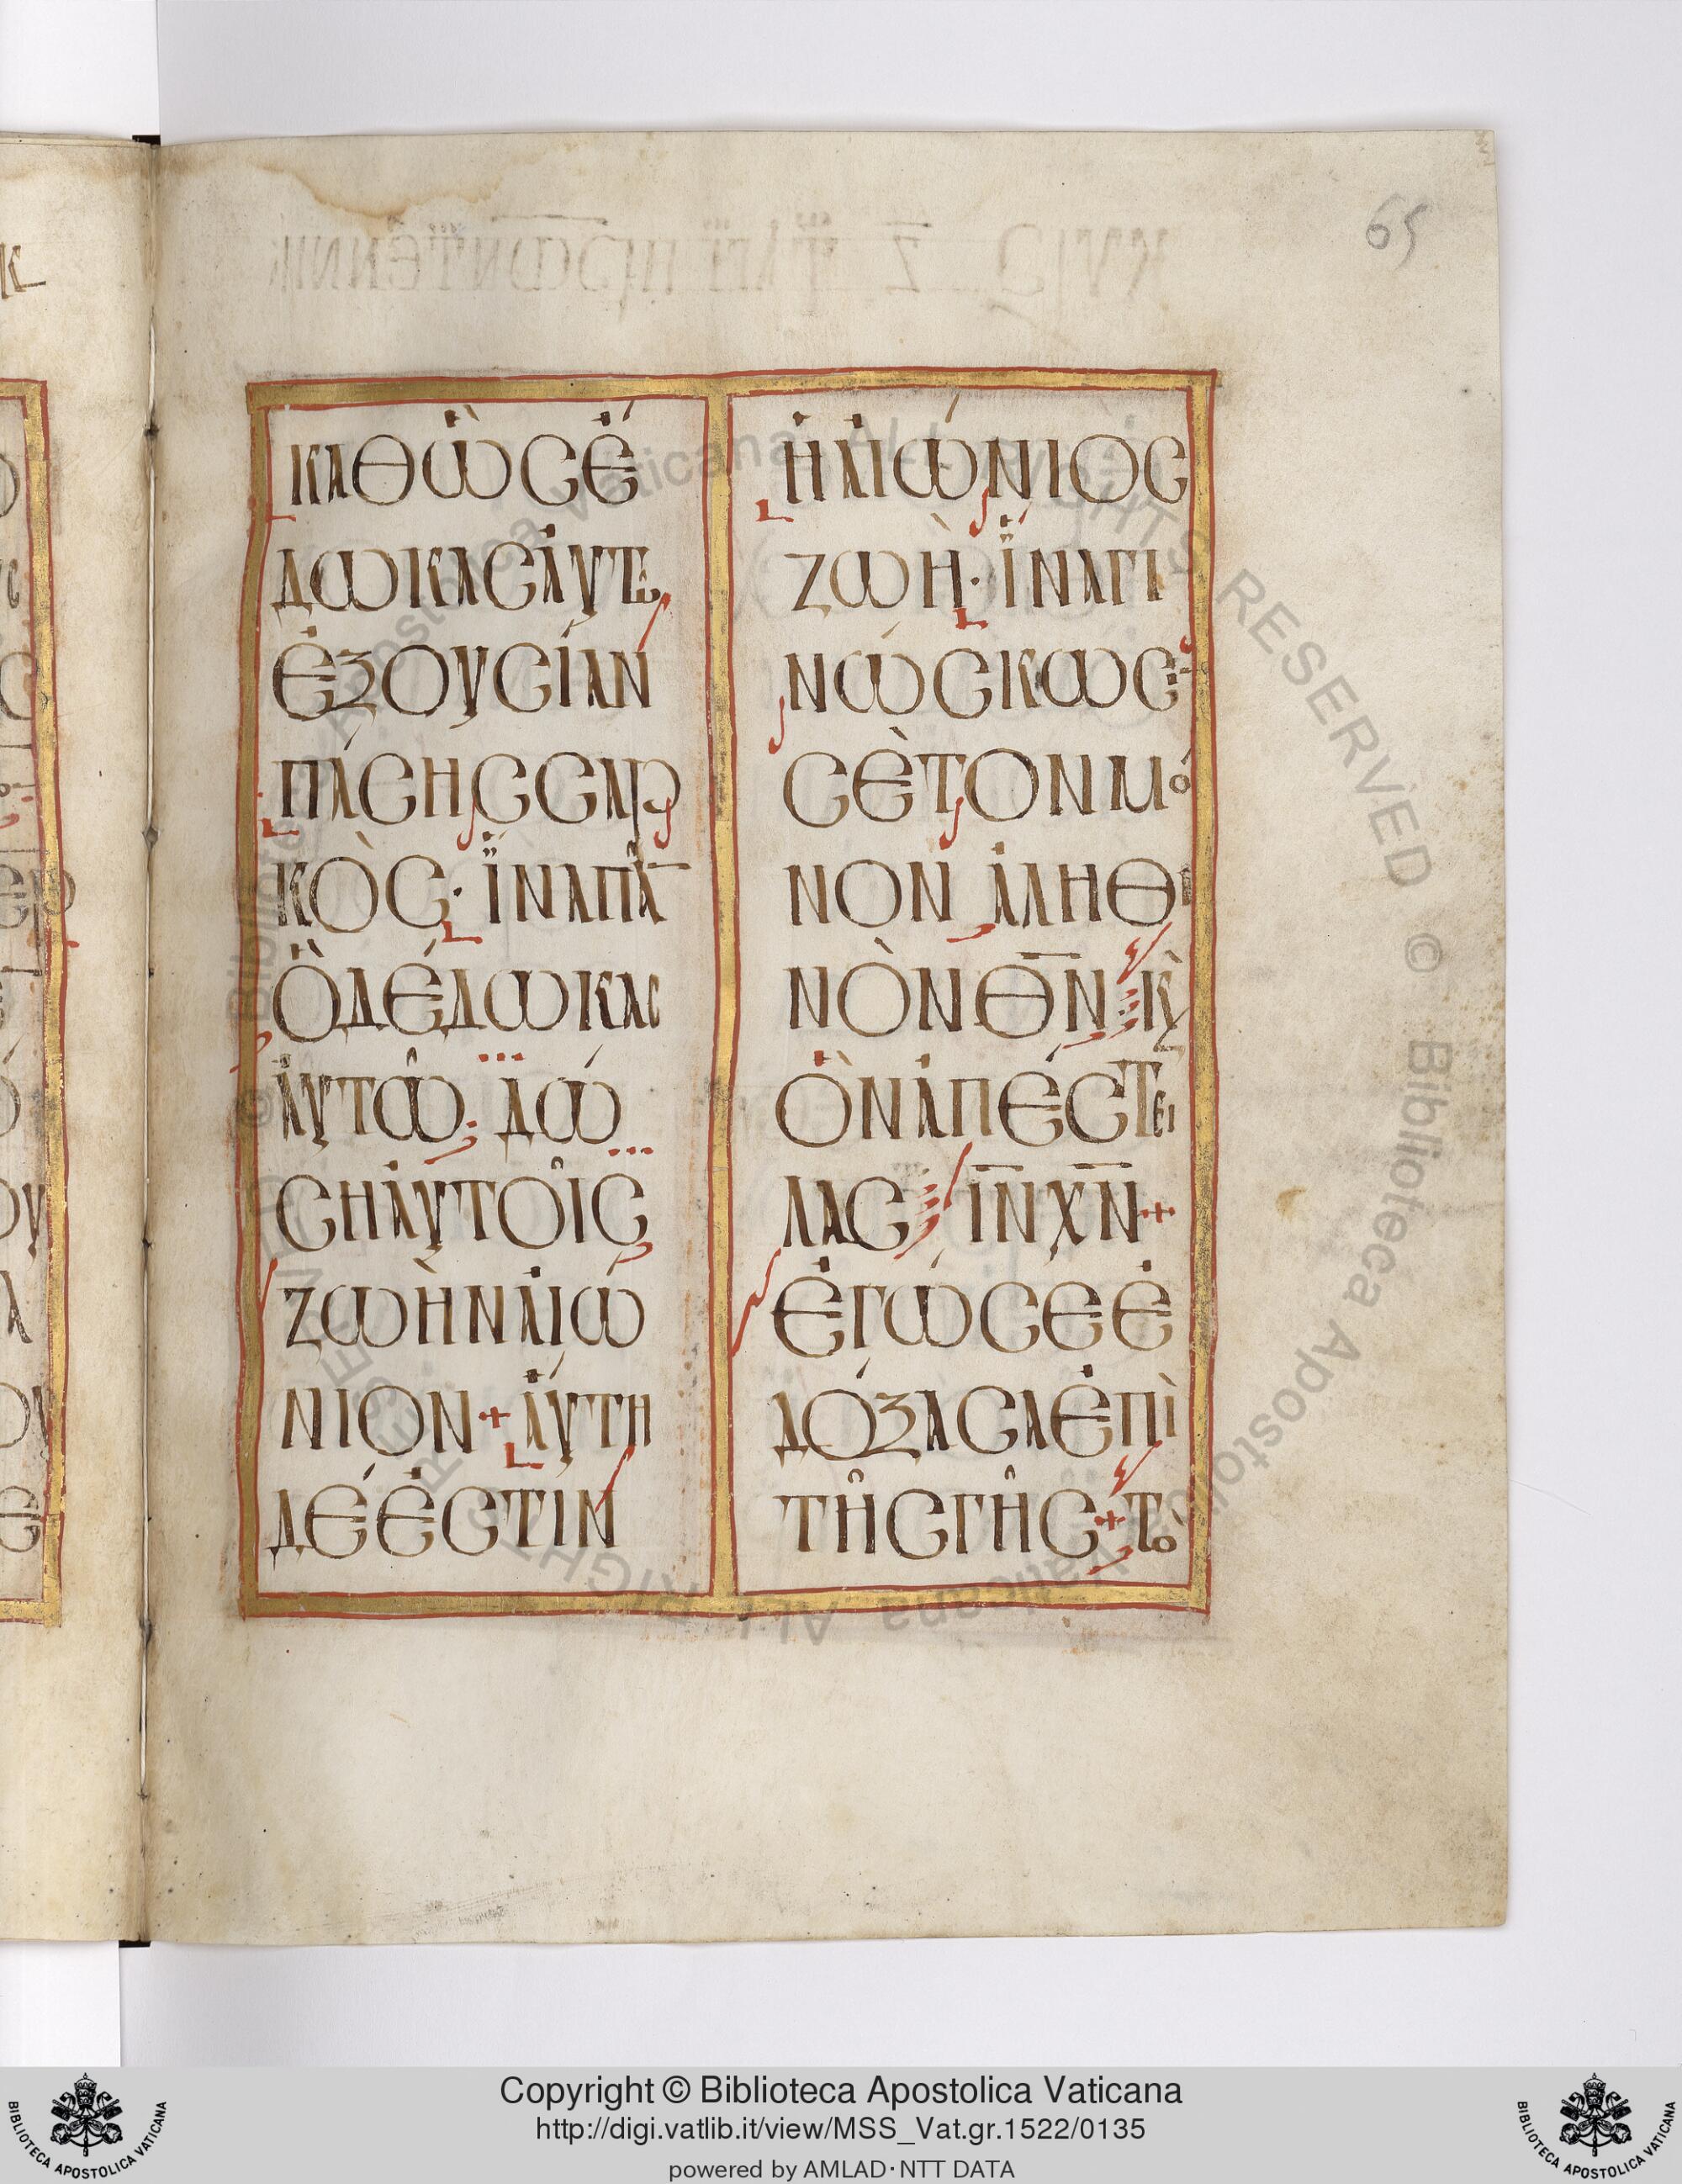 65
ΚΑΘῺΣ Ἔ
ΔΩΚΑΣ ἈΥΤΩ͂
ἘΞΟΥΣΊΑΝ
ΠΆΣΗΣ ΣΑΡ
ΚῸΣ· ἽΝΑ ΠΑ͂̅
Ὃ ΔΈΔΩΚΑΣ
ἈΥΤΩ͂· ΔΏ
ΣΗ ἈΥΤΟΙ͂Σ
ΖΩῊΝ ἈΙΏ
ΝΙΟΝ + ἌΥΤΗ
ΔΈ ἘΣΤΙΝ
Ἡ ἈΙΏΝΙΟΣ
ΖΩῊ· ἽΝΑ ΓΙ
ΝΏΣΚΩΣΙ
ΣῈ ΤΟΝ ΜΌ
ΝΟΝ ἈΛΗΘΙ
ΝῸΝ Θ̅Ν̅· Κ̀
ὋΝ ἈΠΈΣΤΕΙ
ΛΑΣ Ι̅Ν̅ Χ̅Ν̅ +
ἘΓΏ ΣΕ Ἐ
ΔΌΞΑΣΑ ἘΠῚ
ΤΗ͂Σ ΓΗ͂Σ + ΤῸ
Copyright © Biblioteca Apostolica Vaticana
http://digi.vatlib.it/view/MSS_Vat.gr.1522/0135
powered by AMLAD·NTT DATA
BIBLIOTECA APOSTOLICA VATICANA
BIBLIOTECA APOSTOLICA VATICANA